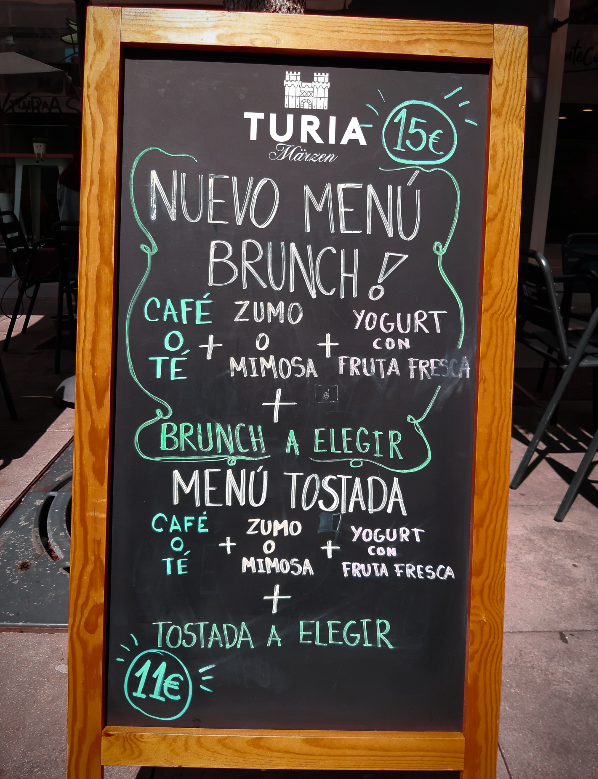 TURIA
Märzen
15€
NUEVO MENÚ
BRUNCH!
CAFÉ O TÉ + ZUMO O MIMOSA + YOGURT CON FRUTA FRESCA
+
BRUNCH A ELEGIR
MENÚ TOSTADA
CAFÉ O TÉ + ZUMO O MIMOSA + YOGURT CON FRUTA FRESCA
+
TOSTADA A ELEGIR
11€